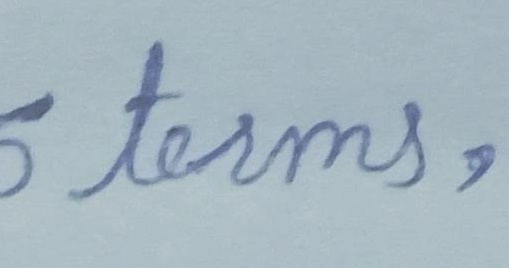 5 terms,